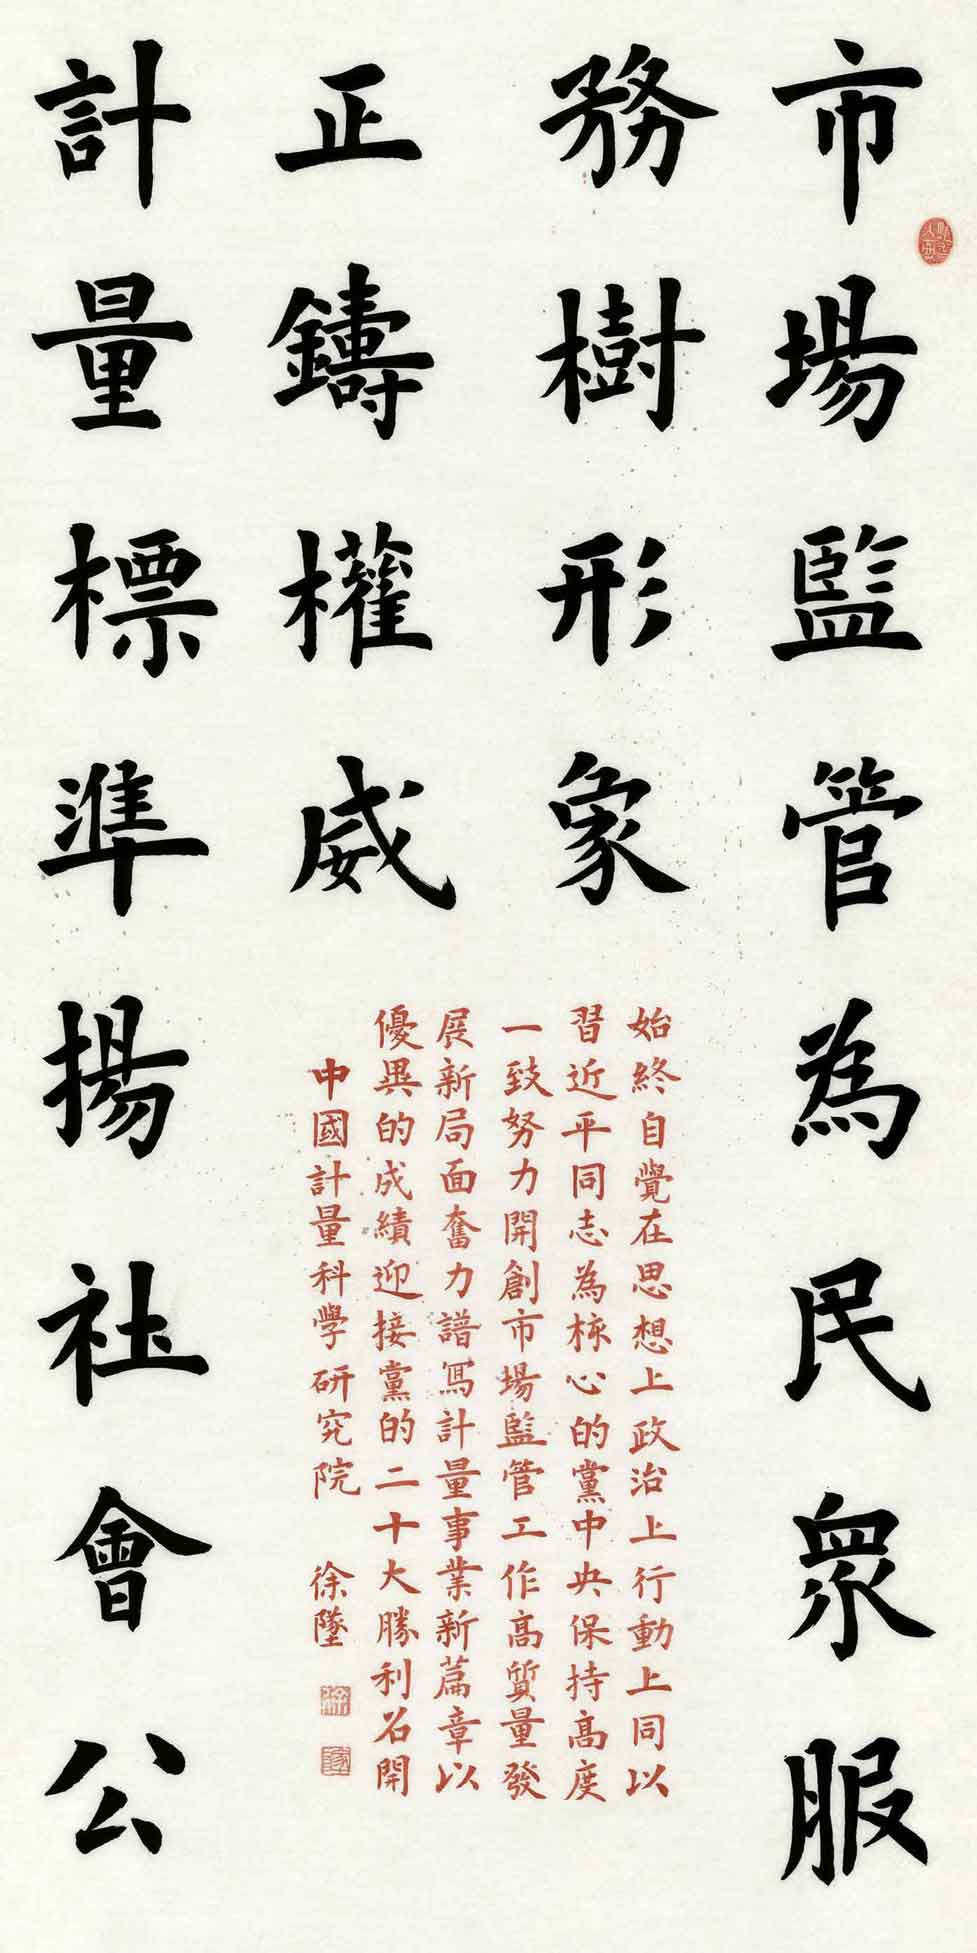 市場監管為民眾服
務樹形象
計量標準揚社會公
正鑄權威
始終自覺在思想上政治上行動上同以
習近平同志為核心的黨中央保持高度
一致努力開創市場監管工作高質量發
展新局面奮力譜寫計量事業新篇章以
優異的成績迎接黨的二十大勝利召開
中國計量科學研究院 徐墜